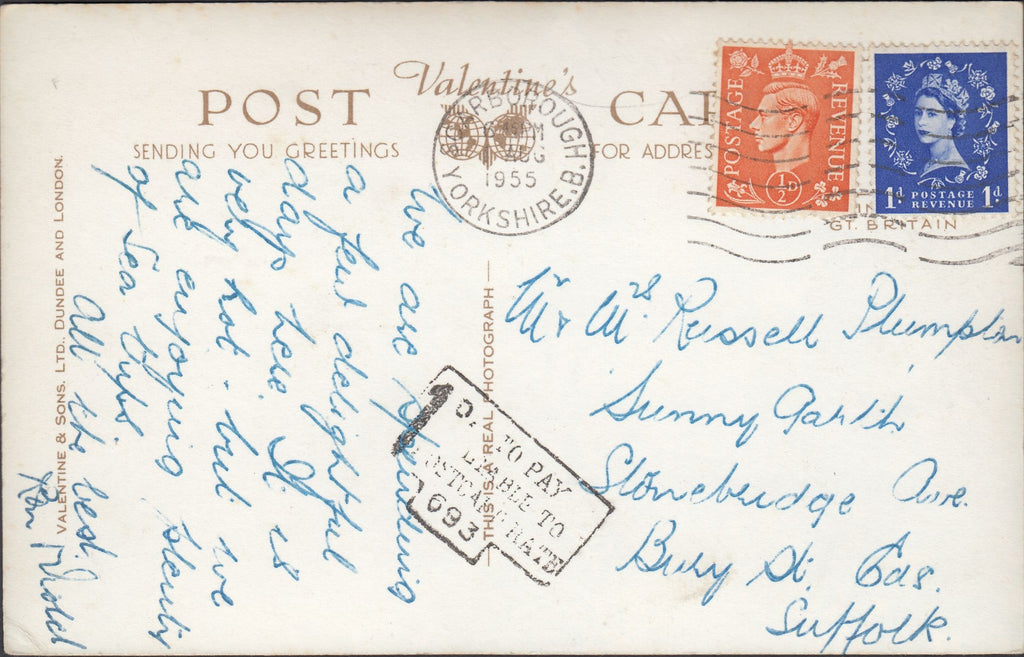 Valentine's
POST CA
SENDING YOU GREETINGS
FOR ADDRES
SCARBOROUGH.B.
YORKSHIRE
AUG
1955
POSTAGE
REVENUE
½D
1d POSTAGE REVENUE 1d
GT. BRITAIN
VALENTINE & SONS. LTD. DUNDEE AND LONDON.
THIS IS A REAL PHOTOGRAPH
We are spending
a few delightful
days here. It is
very hot - but we
are enjoying plenty
of Sea trips
All the best.
Ron
Mr & Mrs. Russell Plumpton
Sunny Garth
Stonebridge Ave.
Bury St. Eds.
Suffolk.
D. TO PAY
LIABLE TO
POSTCARD RATE
693